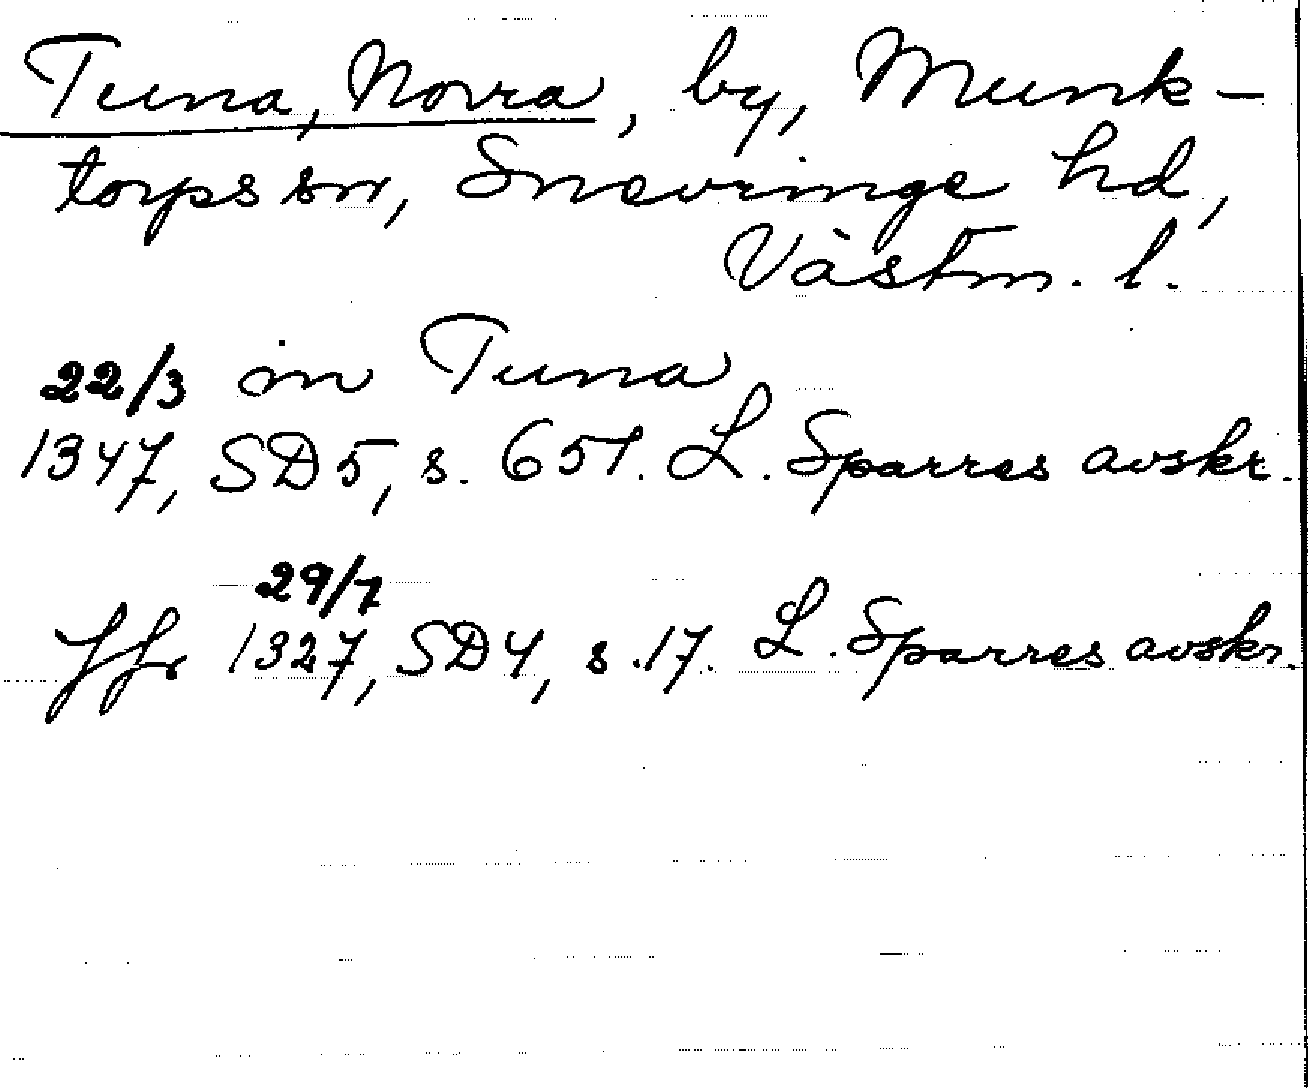 Tuna, Norra, by, Munk-
torps sn, Snevringe hd,
Västm. l.
22/3 in Tuna
1347, SD5, s. 651. L. Sparres avskr.
29/7
Jfr 1327, SD4, s. 17. L. Sparres avskr.